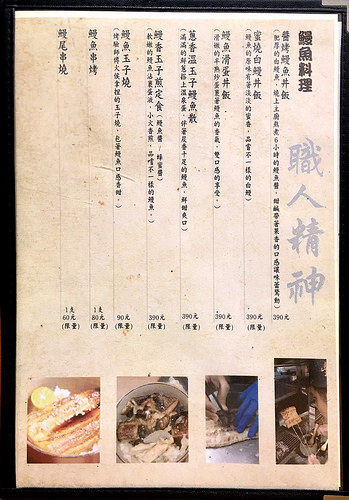 鰻魚料理
職人精神
醬烤鰻魚丼飯 390元
(肥厚的白鰻魚,燒上主廚熬煮6小時的鰻魚醬,甜鹹帶著果香的口感讓味蕾驚動)
蜜燒白鰻丼飯 390元 (限量)
(鰻魚的原味有著淡淡的蜜香,品嘗不一樣的白鰻)
鰻魚滑蛋丼飯 390元 (限量)
(滑嫩的半熟炒蛋裹著鰻魚的香氣,雙口感的享受。)
蔥香溫玉子鰻魚散 390元 (限量)
(滿滿的鮮蔥搭上溫泉蛋,伴著炭香十足的鰻魚,鮮甜爽口)
鰻香玉子煎定食(鰻魚醬/蜂蜜醬) 390元 (限量)
(軟嫩的鰻魚沾裹蛋液,小火香煎,品嘗不一樣的鰻魚。)
鰻魚玉子燒 90元 (限量)
(考驗師傅火侯拿捏的玉子燒,包著鰻魚口感香甜。)
鰻魚串烤 1支 80元 (限量)
鰻尾串燒 1支 60元 (限量)